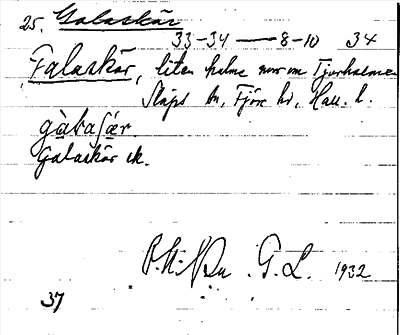 25. Galaskär
33-34 — 8-10 34
Galaskär, liten holme norr om Tjurholmen
Släps sn, Fjäre hd, Hall. l.
gàlaʃær
Galaskär ek.
G. L. 1932
37